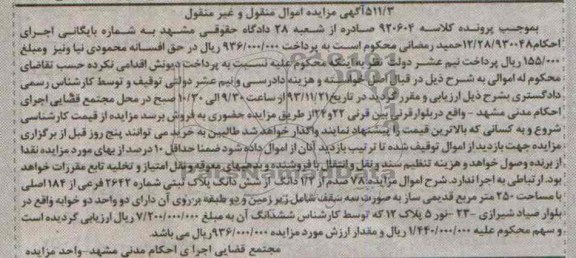 511/3آگهی مزایده اموال منقول و غیر منقول
بموجب پرونده کلاسه 920604 صادره از شعبه 28 دادگاه حقوقی مشهد به شماره بایگانی اجرای
احکام 12/28/930048حمید رمضانی محکوم است به پرداخت 936/000/000 ریال در حق افسانه محمودی نیا ونیز ومبلغ
155/000/ ریال پرداخت نیم عشر دولت نظر به اینکه محکوم علیه نسبت به پرداخت دیونش اقدامی نکرده حسب تقاضای
محکوم له اموالی به شرح ذیل در قبال اصل خواسته و هزینه دادرسی و نیم عشر دولتی توقیف و توسط کارشناس رسمی
دادگستری بشرح ذیل ارزیابی و مقرر گردید در تاریخ 93/11/21 از ساعت 9/30 الی 10/30 صبح در محل مجتمع قضایی اجرای
احکام مدنی مشهد - واقع دربلوارقرنی بین قرنی 22و24از طریق مزایده حضوری به فروش برسد مزایده از قیمت کارشناسی
شروع و به کسانی که بالاترین قیمت را پیشنهاد نمایند واگذار خواهد شد طالبین به خرید می توانند پنج روز قبل از برگزاری
مزایده جهت بازدید از اموال توقیف شده تا ترتیب بازدید آنان از اموال داده شود ضمنا حداقل 10 درصد از بهای مورد مزایده نقدا
از برنده وصول خواهد و هزینه تنظیم سند و نقل و انتقال با فروشنده و بدهیهای معوقه و نقل امتیاز و تخلیه تابع مقررات خواهد
بود. ارتباطی به اجرا ندارد. شرح اموال مزایده: 78 صدم از 1/2 دانگ از شش دانگ پلاک ثبتی شماره 2642 فرعی از 184 اصلی
با مساحت 250 متر مربع قدیمی ساز به صورت سه سقف شامل زیر زمین و دو طبقه بر روی آن دارای دو واحد دو خوابه واقع در
بلوار صیاد شیرازی -23 -نور 5 پلاک 12 که توسط کارشناس ششدانگ آن به مبلغ 7/200/000/000 ریال ارزیابی گردیده است
و سهم محکوم علیه 1/440/000/000 ریال و مقدار ارزش مورد مزایده 936/000/000ریال می باشد.
مجتمع قضایی اجرا ی احکام مدنی مشهد-واحد مزایده